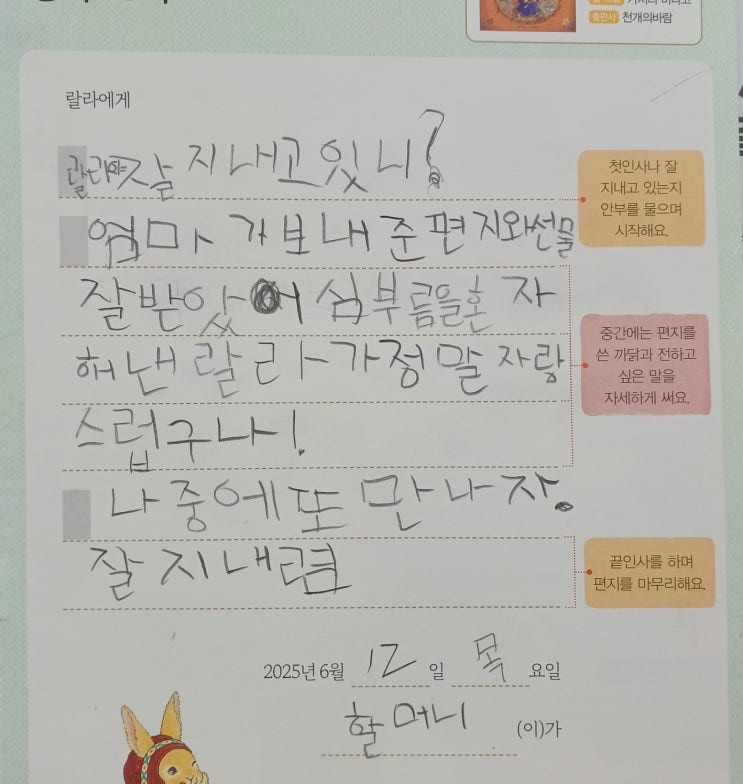 출판사 천개의바람
랄라에게
랄라야 잘 지내고 있니?
첫인사나 잘
지내고 있는지
안부를 물으며
시작해요.
엄마가 보내준 편지와 선물
잘 받앗어 심부름을 혼자
중간에는 편지를
쓴 까닭과 전하고
싶은 말을
자세하게 써요.
해낸 랄라가 정말 자랑
스럽구나!
나중에 또 만나자.
잘 지내렴
끝인사를 하며
편지를 마무리해요.
2025년 6월 12일 목요일
할머니 (이)가